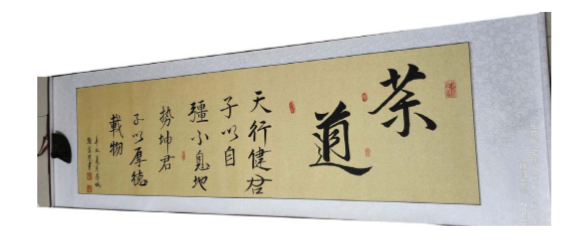 茶道
天行健君
子以自
彊不息地
势坤君
子以厚德
載物